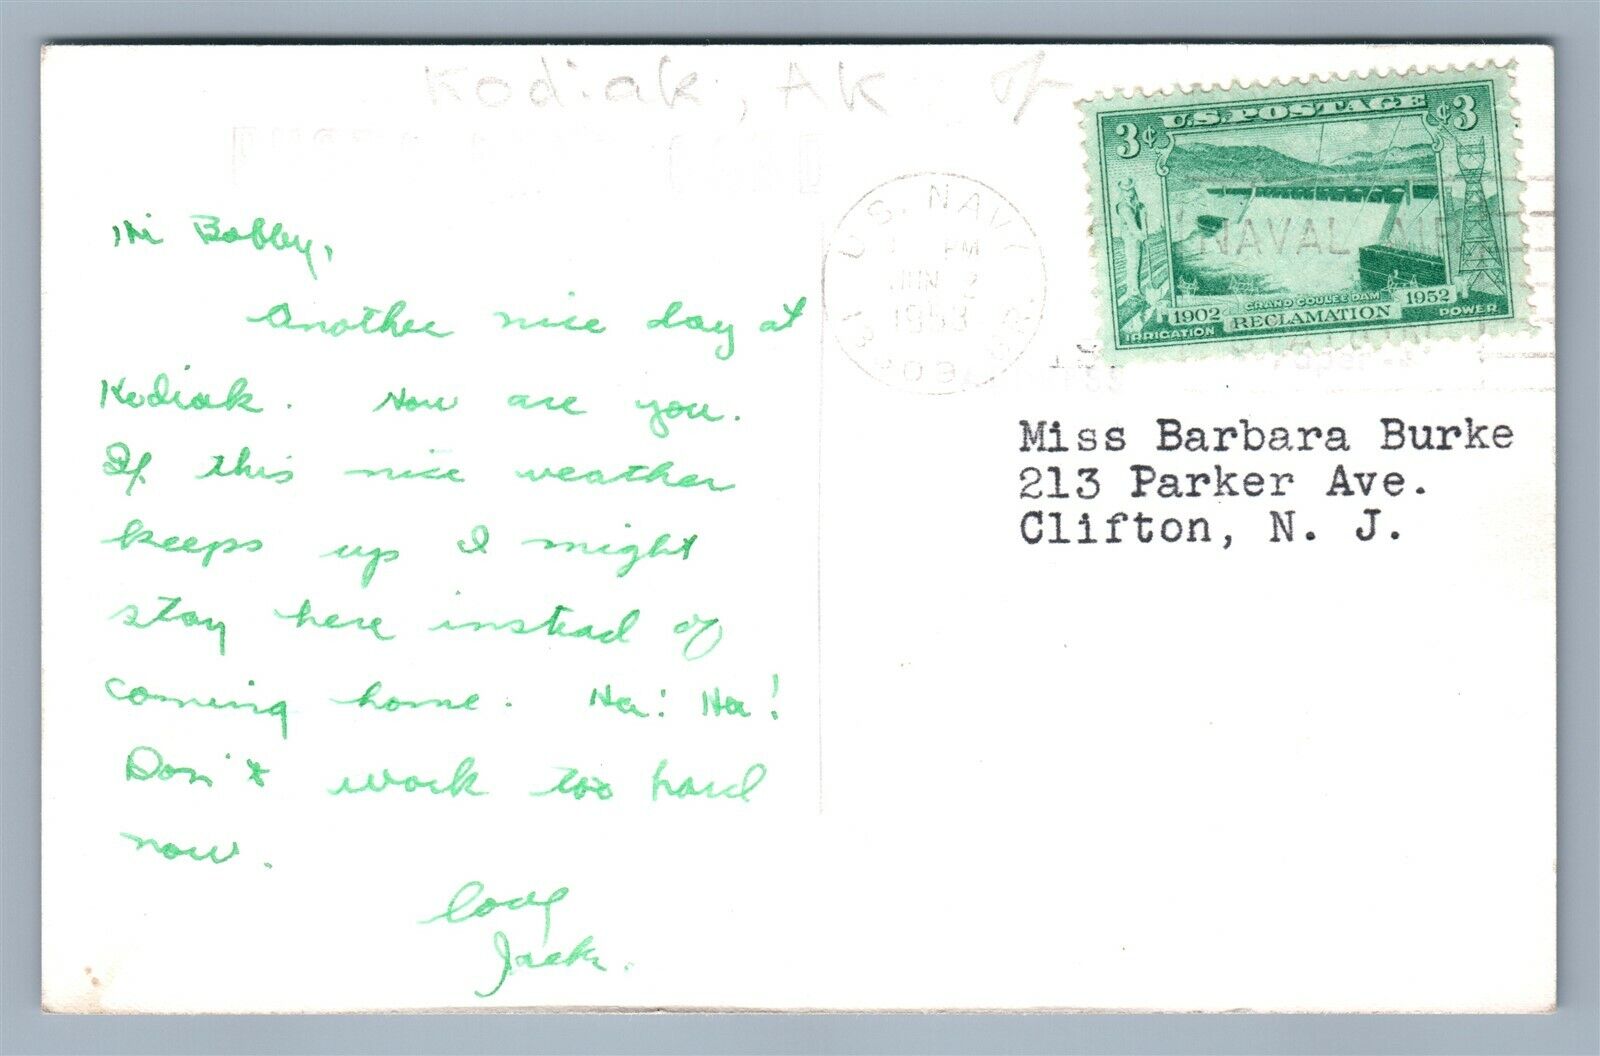 Kodiak, AK
POST CARD
Hi Bobbey,
Another nice day at
Kodiak. How are you.
If this nice weather
keeps up I might
stay here instead of
coming home. Ha! Ha!
Don't work too hard
now.
Love
Jack.
U.S. NAVY
PM
JUN 2
1953
NAVAL AIR
STATION
3¢ U.S. POSTAGE ¢3
GRAND COULEE DAM
1902 RECLAMATION 1952
IRRIGATION POWER
Miss Barbara Burke
213 Parker Ave.
Clifton, N. J.